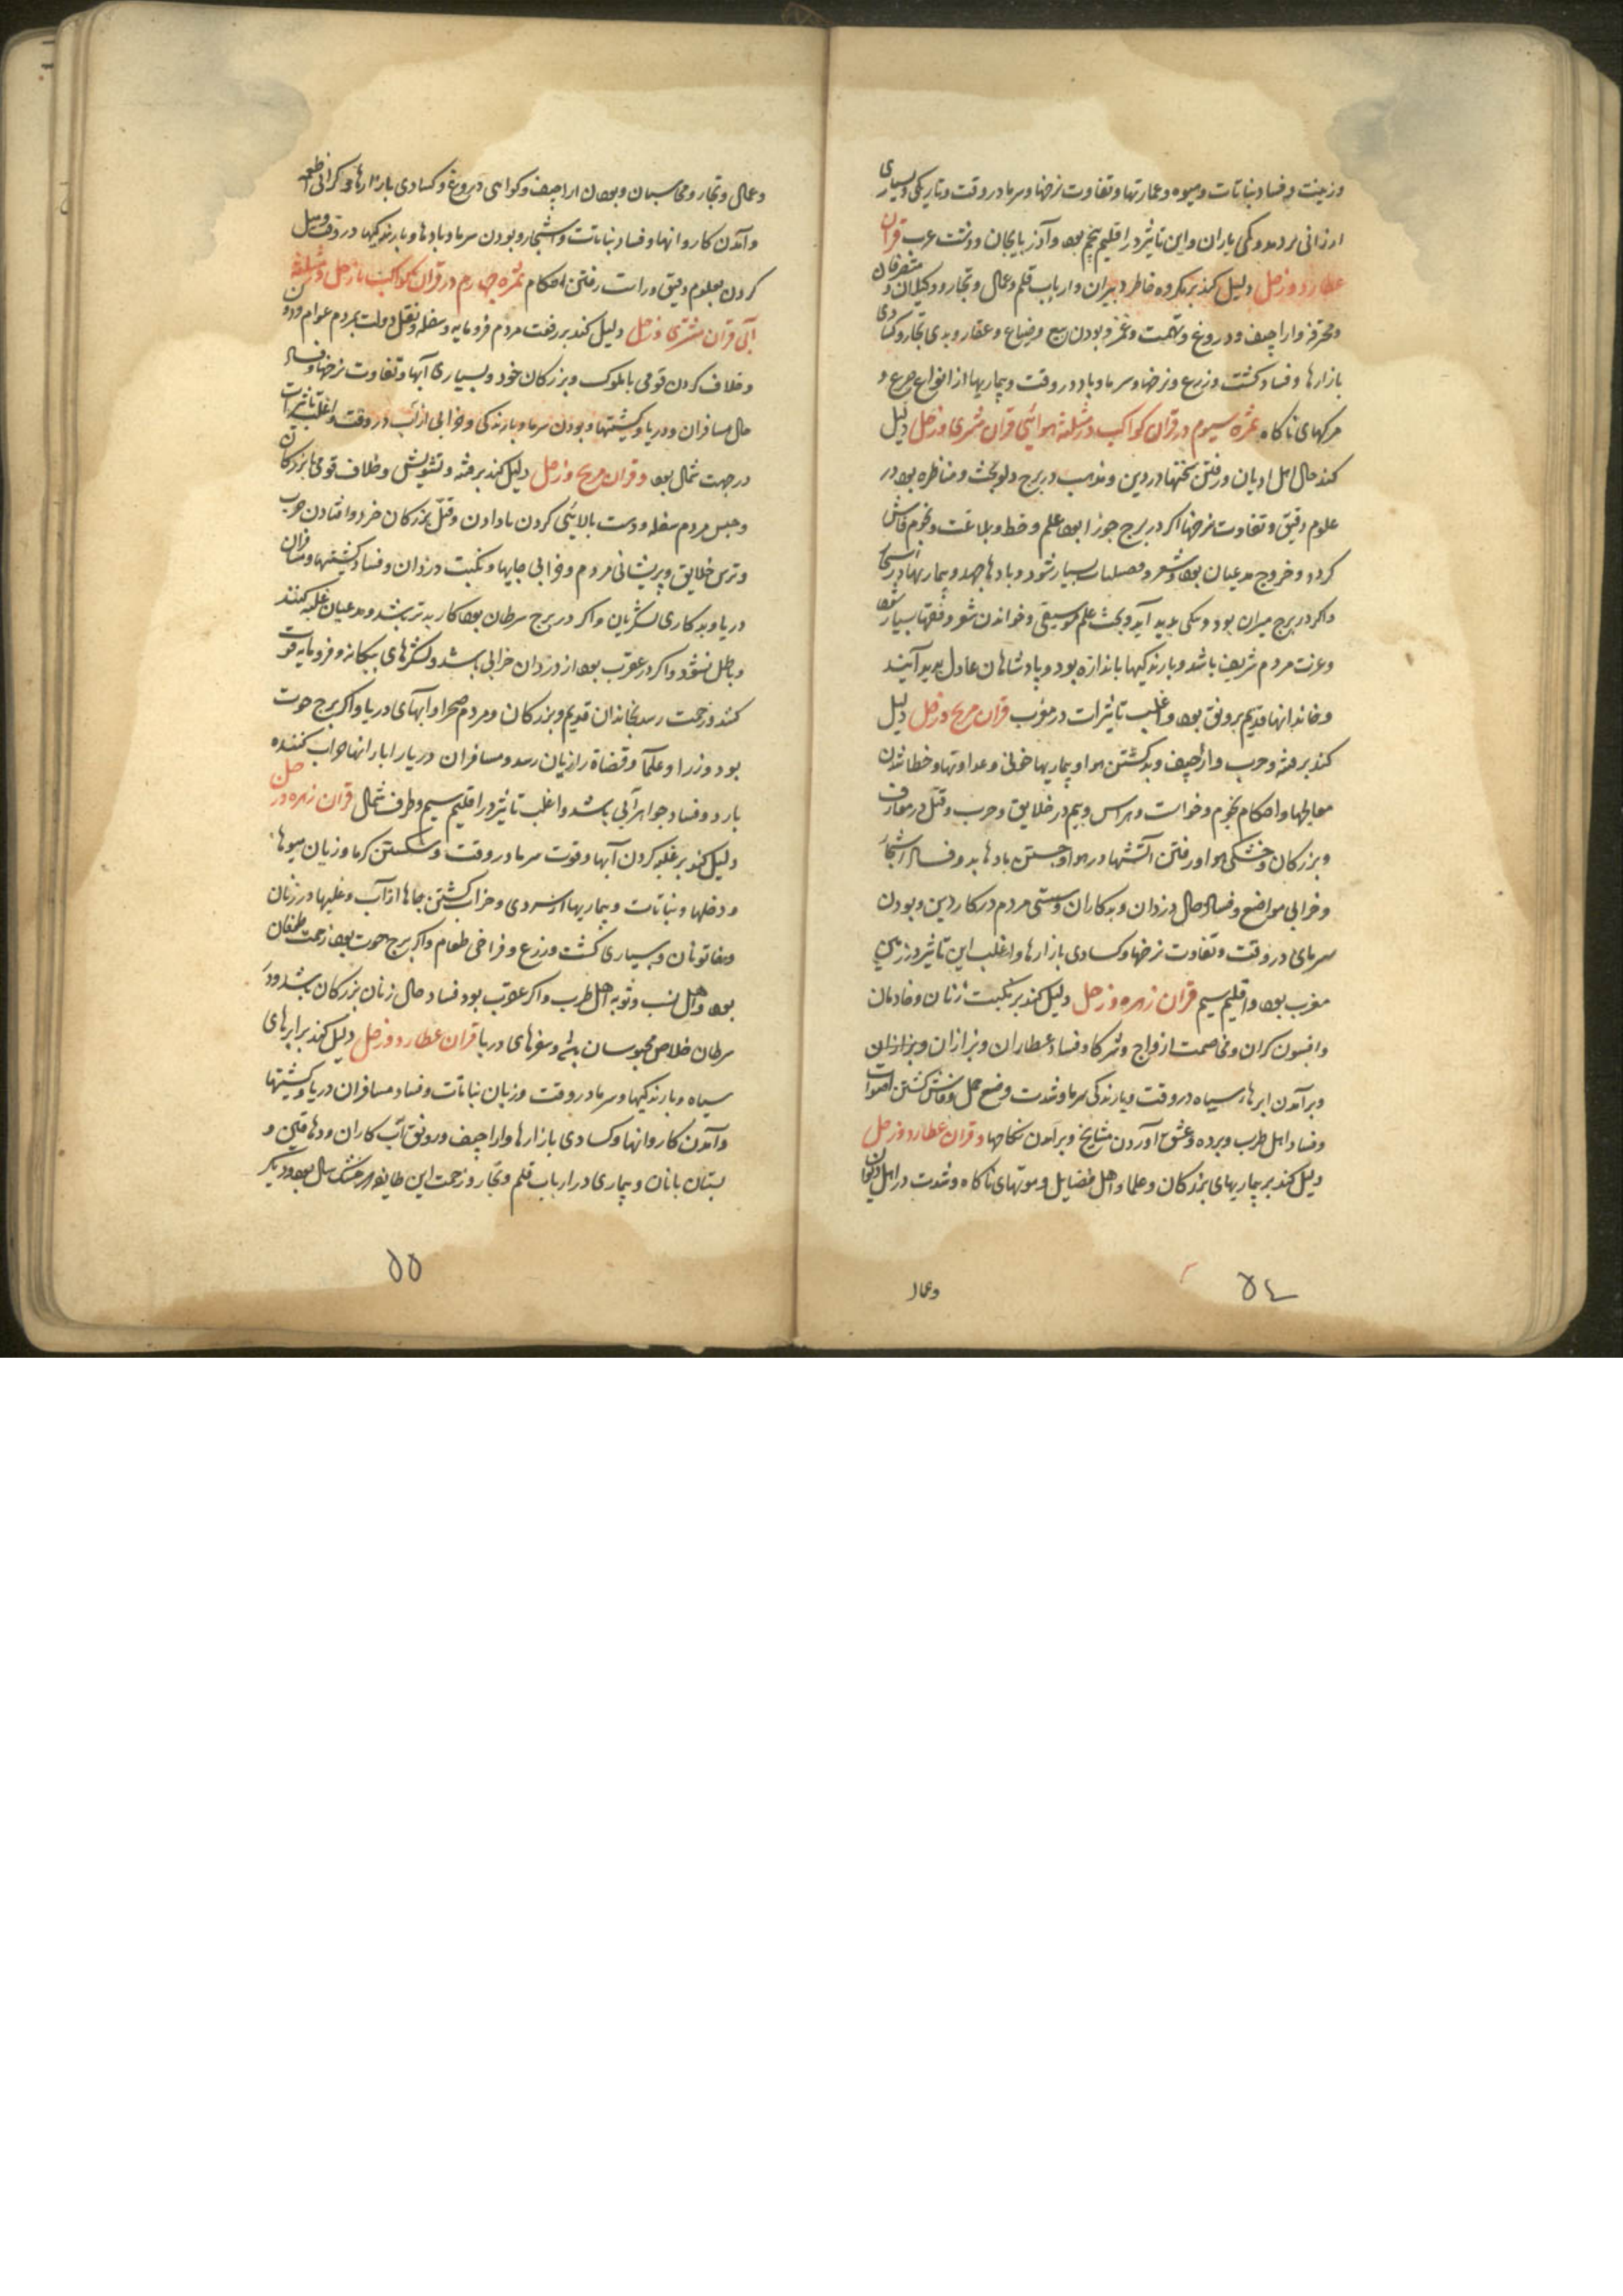 وزینت و فساد نباتات و میوه و عمارتها و تفاوت نرخها و سرما در وقت و تاریکی و بسیاری
ارزانی بود و کمی باران و این تاثیر در اقلیم پنجم بود و آذربایجان و دشت عرب قران
عطارد و زحل دلیل کند بر مکروه خاطر دبیران و ارباب قلم و عمال و تجار و وکیلان و متصرفان
و محترفه و اراجیف و دروغ و تهمت و غمز و بودن بیع و ضیاع و عقار و بدی تجار و کسادی
بازارها و فساد کشت و زرع و نرخها و سرما و باد در وقت و بیماریها از انواع صرع و
مرکهای ناکاه ثمره سیوم در قران کواکب در مثلثه هوائی قران مشتری و زحل دلیل
کند حال اهل ادیان و رفتن سختیها در دین و مذهب در برج دلو بحث و مناظره بود در
علوم دقیق و تفاوت نرخها اکر در برج جوزا بود علم و خط و بلاغت و نجوم فاش
کردد و خروج مدعیان بود و شعر و بسیار شود و بادها جهد و بیماریها
واکر در برج میزان بود و نیکی پدید آید و بحث علم موسیقی و خواندن شعر و بسیار شود
و عزت مردم شریف باشد و بارندکیها باندازه بود و پادشاهان عادل پدید آیند
و خاندانهای قدیم برونق بود و اغلب تاثیرات در مغرب قران مریخ و زحل دلیل
کند بر فتنه و حرب و اراجیف و بدکشتن هوا و بیماریها خونی و عداوتها و خطا شدن
معالجها و احکام نجوم و خواست و هراس و بیم در خلایق و حرب و قتل در معارف
و بزرکان و خشکی هوا و رفتن آتشها در هوا و جستن بادها بد و فساد اشجار
و خرابی مواضع و فساد حال دزدان و بدکاران و سستی مردم در کار دین و بودن
سرمای در وقت و تفاوت نرخها و کسادی بازارها و اغلب این تاثیر در زمین
مغرب بود و اقلیم سیم قران زهره و زحل دلیل کند بر نکبت زنان و خادمان
و افسون کران و مخاصمت ازواج و شرکا و فساد عطاران و بزازان و
و برآمدن ابرهاء سیاه در وقت و بارندکی سرما و شدت وضع حمل و فاش کشتن اصوات
و فساد اهل طرب و برده و عشق آوردن مشایخ و برآمدن نکاحها و قران عطارد و زحل
دلیل کند بر بیماریهای بزرکان و علما و اهل فضایل و موتهای ناکاه و شدت در اهل دیوان
وعمال
۵۴
وعمال و تجار و محاسبان و بودن اراجیف و کواهی دروغ و کسادی بازارها و کرانی اطعمه
و آمدن کاروانها و فساد نباتات و اشجار و بودن سرما و بادها و بارندکیها در وقت و میل
کردن بعلوم دقیق و راست رفتن احکام ثمره چهارم در قران کواکب با زحل در مثلثه
آبی قران مشتری و زحل دلیل کند بر رفعت مردم فرومایه و سفله و نقل دولت بمردم عوام و دون
و خلاف کردن قومی با ملوک و بزرکان خود و بسیاری آبها و تفاوت نرخها و فساد
حال مسافران و دریا و کشتیها و بودن سرما و بارندکی و خرابی از آب در وقت و اغلب تاثیرات
در جهت شمال بود و قران مریخ و زحل دلیل کند بر فتنه و تشویش و خلاف قومی با بزرکان
و حبس مردم سفله و دست بالائی کردن و قتل بزرکان خرد و افتادن حرب
و ترس خلایق و پریشانی مردم و خرابی جایها و نکبت دزدان و فساد کشتیها و مسافران
دریا و بدکاری لشکریان و اکر در برج سرطان بود کار بدتر باشد و مدعیان غلبه کنند
و باطل نشود و اکر در عقرب بود از دزدان خرابی باشد و لشکرهای بیکانه و فرومایه قوت
کند و زحمت رسد بخاندان قدیم و بزرکان و مردم صحرا و آبهای دریا و اکر برج حوت
بود وزرا و علما و قضاة را زیان رسد و مسافران دریا را بارانها خراب کننده
بارد و فساد جواهر آبی باشد و اغلب تاثیر در اقلیم سیم و طرف شمال قران زهره و زحل
دلیل کند بر غلبه کردن آبها و قوت سرما در وقت و شکستن کرما و زیان میوها
و دخلها و نباتات و بیماریها از سردی و خراب کشتن جاها از آب و در زنان
و خاتونان و بسیاری کشت و زرع و فراخی طعام و اکر برج حوت بود زحمت طفلان
بود و اهل نسب و توبه اهل طرب و اکر عقرب بود فساد حال زنان بزرکان باشد و در
سرطان خلاص محبوسان باشد و سفرهای دریا قران عطارد و زحل دلیل کند بر ابرهای
سیاه و بارندکیها و سرما در وقت و زیان نباتات و فساد مسافران دریا و کشتیها
و آمدن کاروانها و کسادی بازارها و اراجیف و رونق آب کاران و دهاقین و
بستان بانان و بیماری در ارباب قلم و تجار و زحمت این طایفه خشک سال بود و دیکر
۵۵